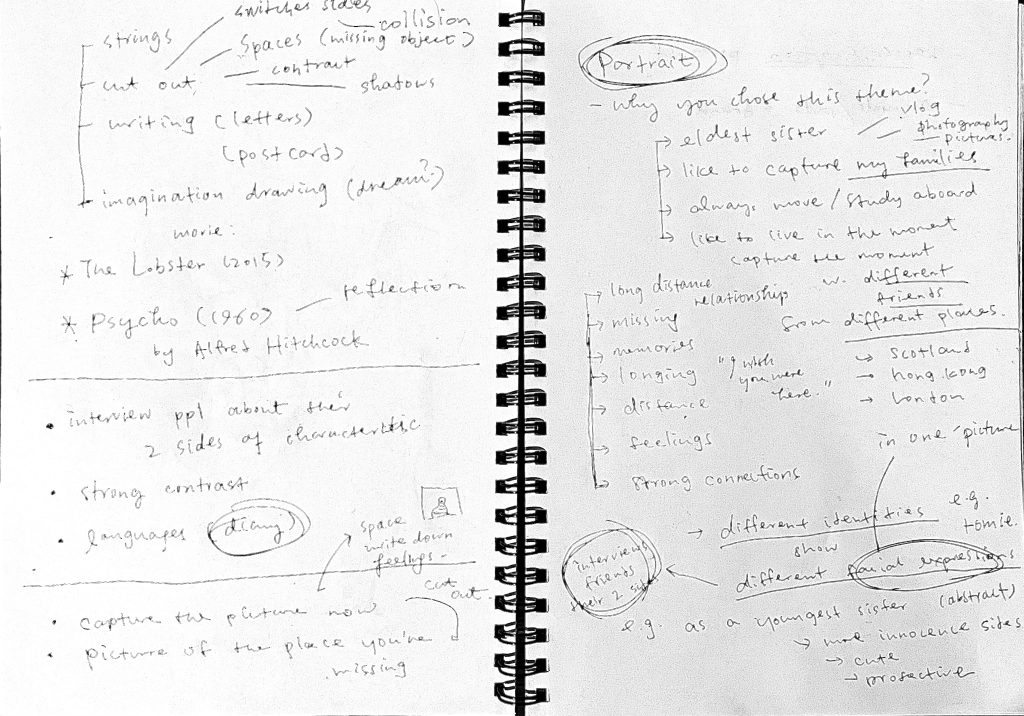 switches sides
collision
strings
spaces (missing object)
cut out
contrast
shadows
writing (letters)
(postcard)
imagination drawing (dream?)
movie:
* The Lobster (2015)
* Psycho (1960)
reflection
by Alfred Hitchcock
• interview ppl about their
2 sides of characteristic
• strong contrast
• languages (diary)
space
write down
feelings.
cut
out
• capture the picture now
• picture of the place you're
missing
Portrait
- why you chose this theme?
→ eldest sister
vlog
photography
pictures.
→ like to capture my families
→ always move / study aboard
→ like to live in the moment
capture the moment
w. different
friends
from different places.
→ Scotland
→ hong kong
→ London
in one picture
→ long distance
relationship
→ missing
→ memories
→ longing
"I wish
you were
here."
→ distance
→ feelings
→ strong connections
→ different identities
e.g.
tomie.
show
different facial expressions
(abstract)
interviews
friends
their 2 side
e.g. as a youngest sister
→ more innocence sides
→ cute
→ protective